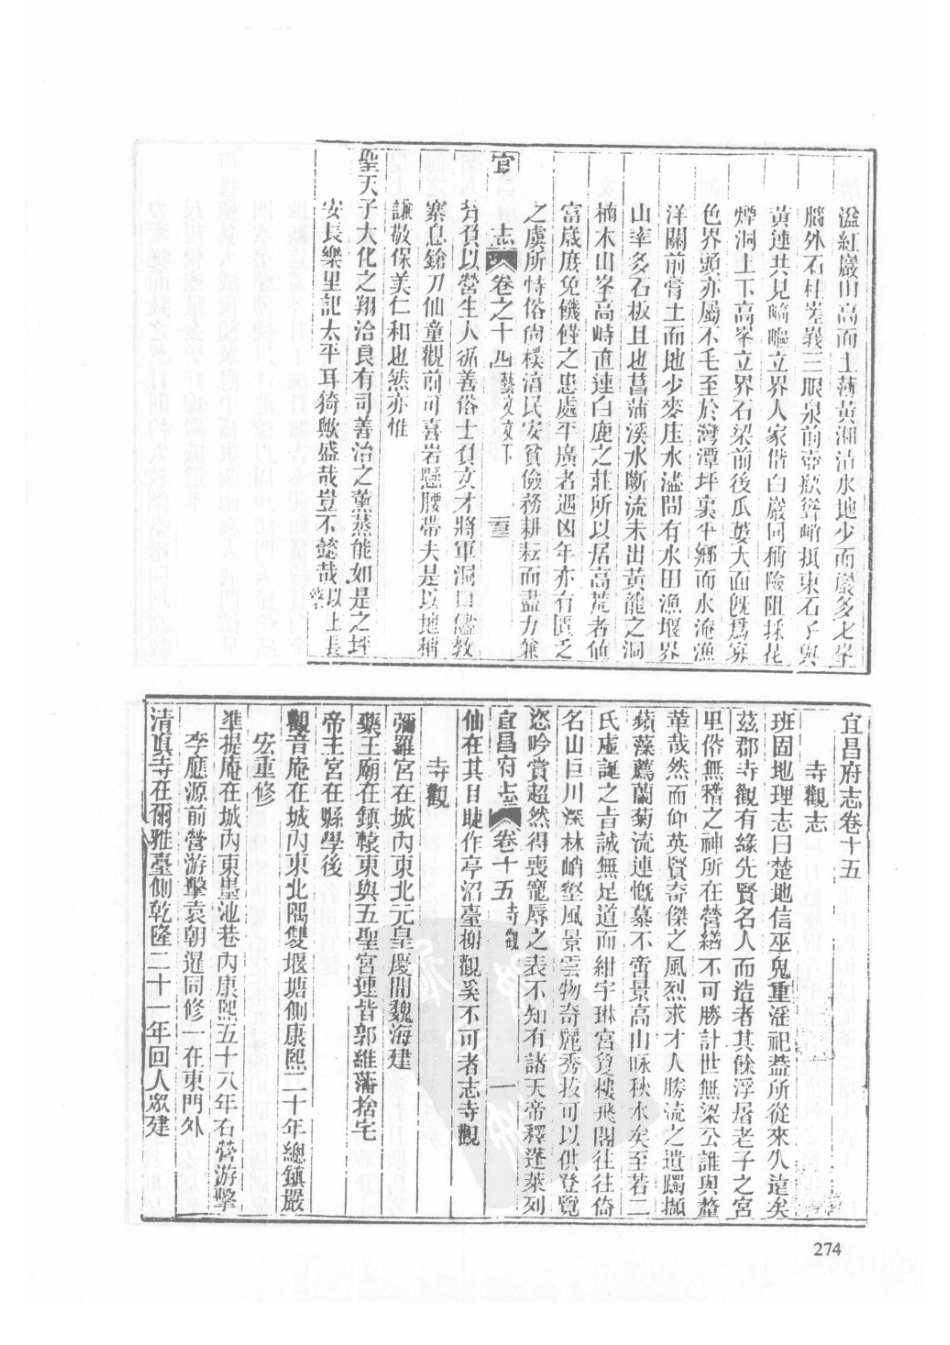 溢紅巖山高而土薄黃湘沽水地少而巖多七孳
腦外石柱嵳羲三眼泉前壺瓶聳峭抵東石子與
黃連共見崎嶇立界人家偕白巖同稱險阻採花
煙洞上下高峯立界石梁前後瓜蔞大面旣爲寡
色界頭亦屬不毛至於灣潭坪裏平鄉而水淹漁
洋關前膏土而地少麥庄水濜間有水田漁堰界
山率多石板且也菖蒲溪水斷流未出黃龍之洞
楠木山峯高峙直連白鹿之莊所以居高荒者値
富歲庶免饑饉之患處平廣者遇凶年亦有匱乏
之虞所恃俗尙樸淯民安貧儉務耕耘而盡力兼
宜 志 卷之十四 藝文文下 三
背負以營生人循善俗士負文才將軍洞口儘敎
寨息鎗刀仙童觀前可喜岩懸腰帶夫是以地稱
謙敬保美仁和也然亦惟
聖天子大化之翔洽良有司善治之薰蒸能如是之坪
安長樂里記太平耳猗歟盛哉豈不懿哉 以上長
宜昌府志卷十五
寺觀志
班固地理志曰楚地信巫鬼重淫祀葢所從來久遠矣
茲郡寺觀有緣先賢名人而造者其餘浮屠老子之宮
里俗無稽之神所在營繕不可勝計世無梁公誰與釐
革哉然而仰英賢奇傑之風烈求才人勝流之遺躅擷
蘋藻薦蘭菊流連慨慕不啻景高山咏秋水矣至若二
氏虛誕之言誠無足道而紺宇琳宮負樓飛閣往往倚
名山巨川深林峭壑風景雲物奇麗秀拔可以供登覽
恣吟賞超然得喪寵辱之表不知有諸天帝釋蓬萊列
宜昌府志 卷十五 寺觀 一
仙在其目睫作亭沼臺榭觀奚不可者志寺觀
寺觀
彌羅宮在城內東北元皇慶間魏海建
藥王廟在鎭轅東與五聖宮連皆郭維藩捨宅
帝主宮在縣學後
觀音庵在城內東北隅雙堰塘側康熙二十年總鎭嚴
宏重修
準提庵在城內東墨池巷內康熙五十八年右營游擊
李應源前營游擊袁朝暹同修一在東門外
清眞寺在爾雅臺側乾隆二十一年回人眾建
274